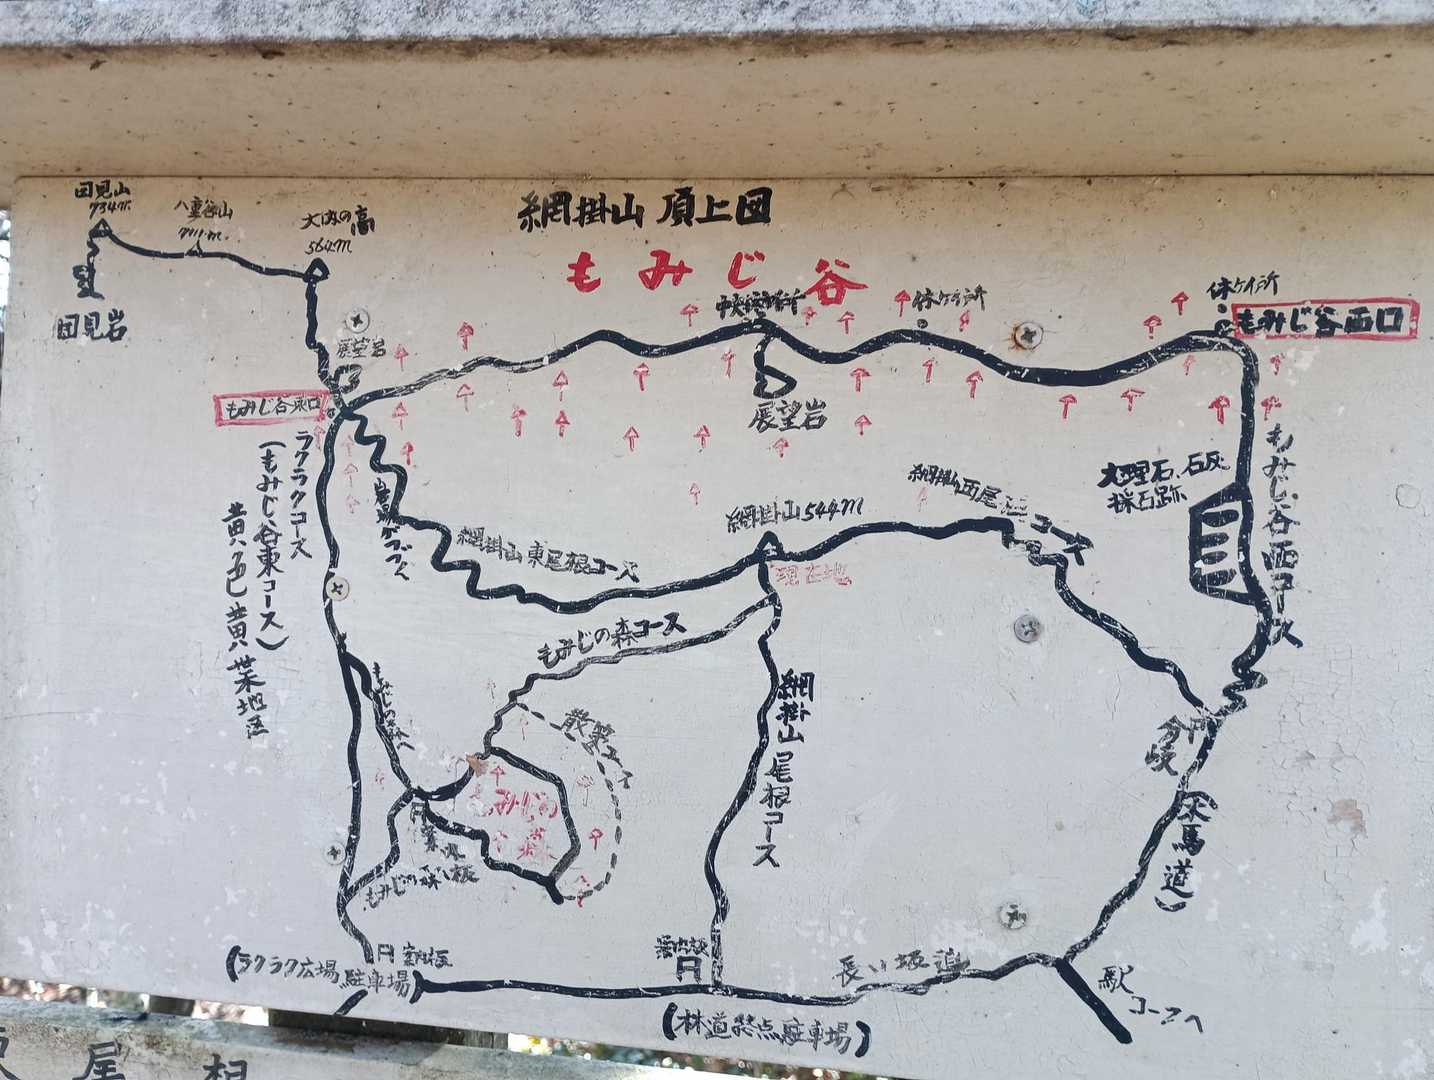 網掛山 頂上図
もみじ谷
国見山
734m
八重谷山
711m
大内の高
564m
国見岩
展望岩
中央休ケイ所
休ケイ所
休ケイ所
もみじ谷西口
もみじ谷東口
展望岩
ラクラクコース
(もみじ谷東コース)
黄色黄葉地区
岩場がつづく
網掛山 東尾根コース
網掛山 544m
現在地
網掛山西尾根コースへ
大理石、石灰
採石跡
もみじ谷西コース
もみじの森コース
もみじの森へ
散策
もみじの
森
案内板
もみじの森
網掛山尾根コース
分岐
(木馬道)
案内板
(ラクラク広場駐車場)
案内板
長い坂道
(林道終点駐車場)
駅
コースへ
尾根